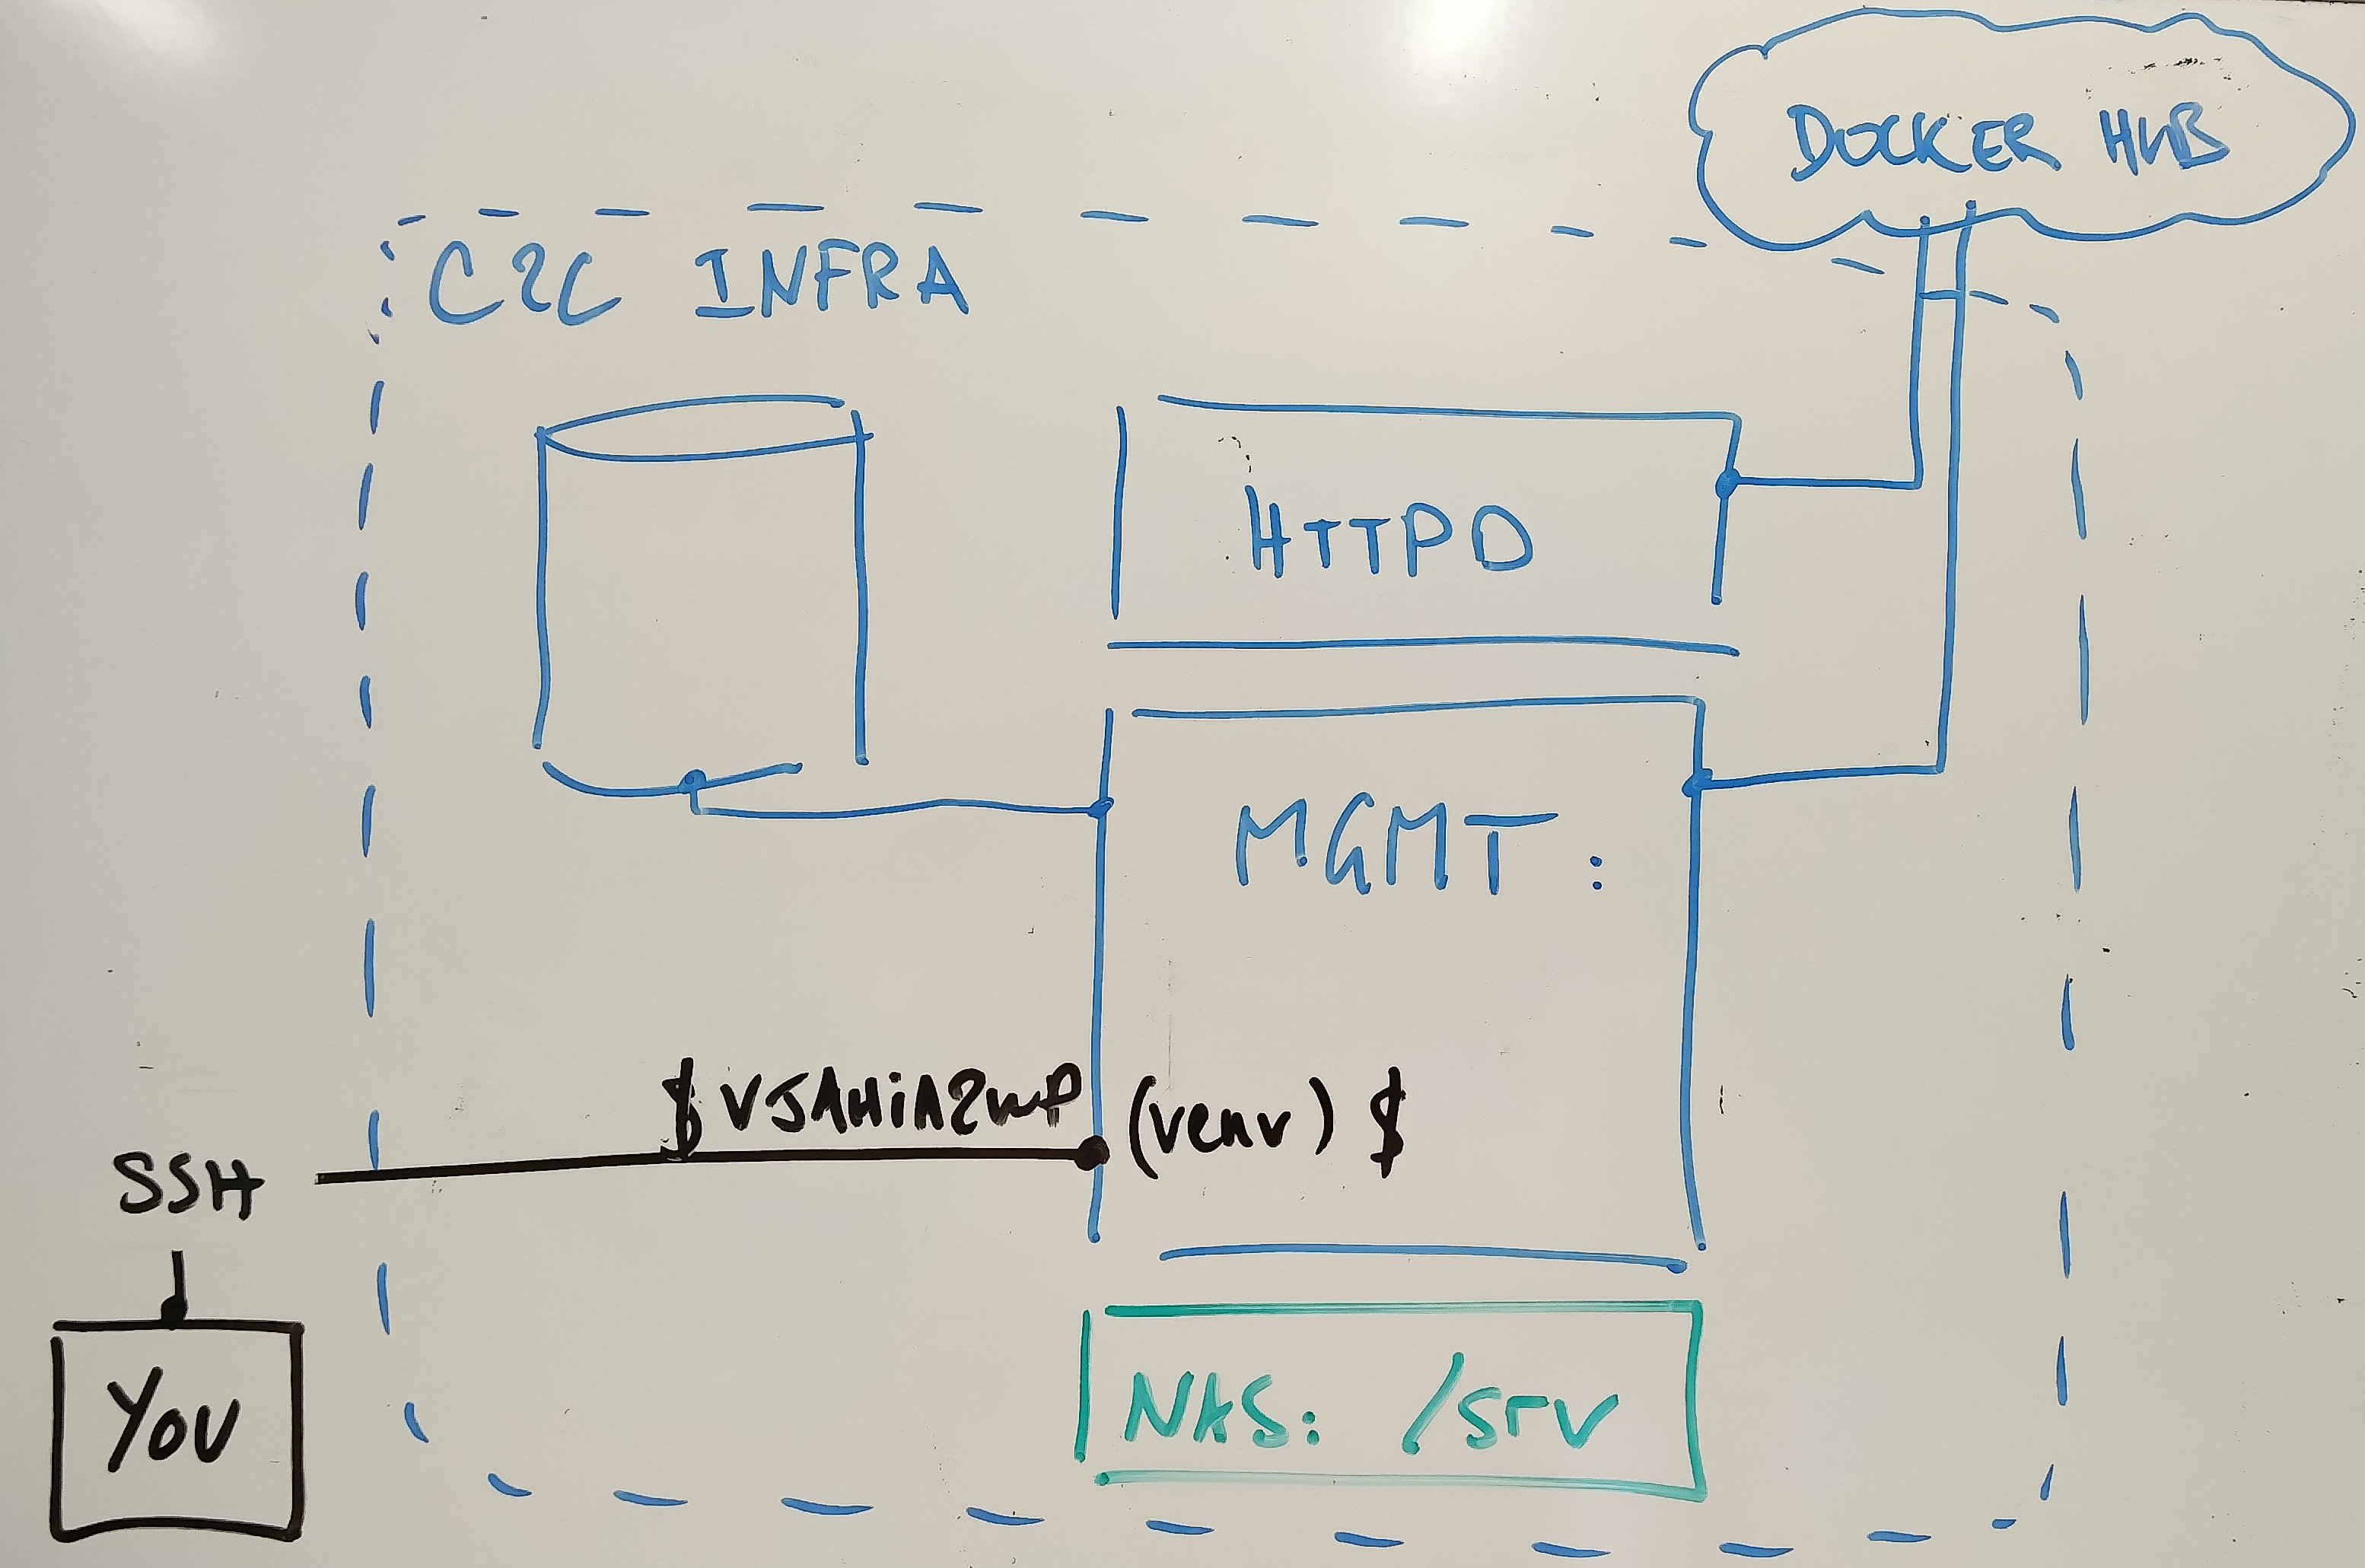 DOCKER HUB
C2C INFRA
HTTPD
MGMT:
$ VJAHiA2WP (venv) $
SSH
YOU
NAS: /SrV